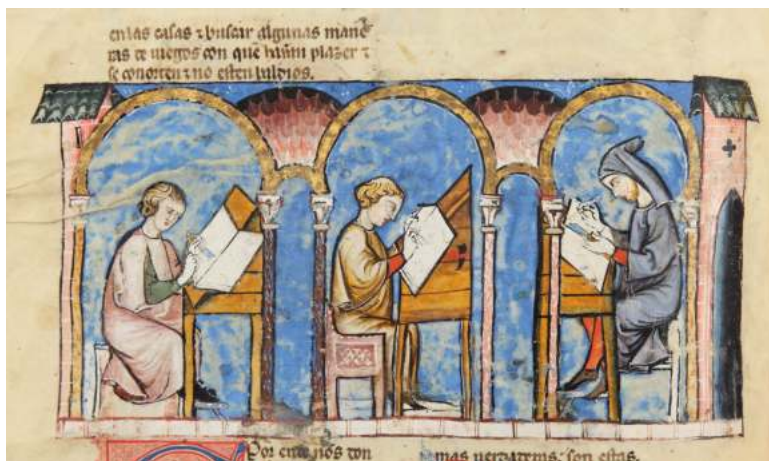 en las casas ⁊ buscar algunas mane
ras de iuegos con que hayan plazer ⁊
se conorten ⁊ no esten baldios.
Por ende nos don
mas uerdaderas; son estas.